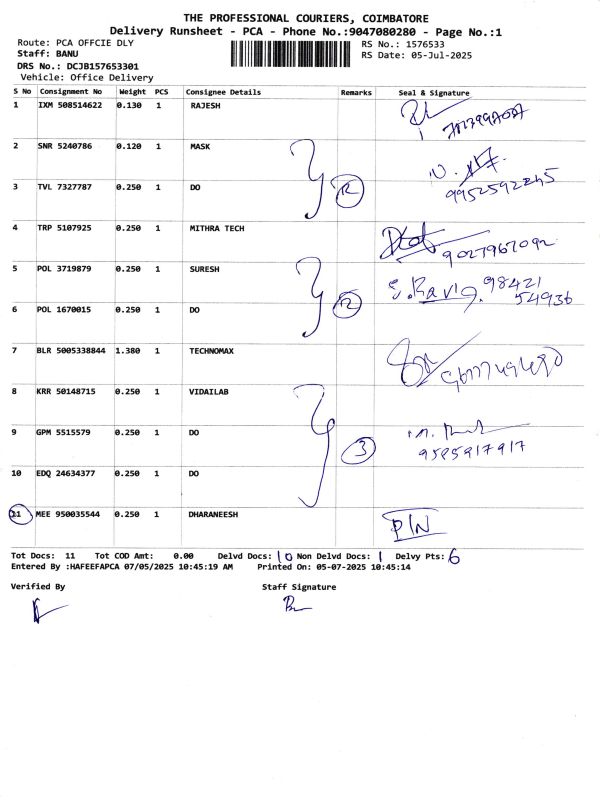 THE PROFESSIONAL COURIERS, COIMBATORE
Delivery Runsheet - PCA - Phone No.:9047080280 - Page No.:1
Route: PCA OFFCIE DLY RS No.: 1576533
Staff: BANU RS Date: 05-Jul-2025
DRS No.: DCJB157653301
Vehicle: Office Delivery
S No Consignment No Weight PCS Consignee Details Remarks Seal & Signature
1 IXM 508514622 0.130 1 RAJESH
2 SNR 5240786 0.120 1 MASK
3 TVL 7327787 0.250 1 DO 2 9952592245
4 TRP 5107925 0.250 1 MITHRA TECH 9027967092
5 POL 3719879 0.250 1 SURESH S.Ravi 98421
54936
6 POL 1670015 0.250 1 DO 2
7 BLR 5005338844 1.380 1 TECHNOMAX
8 KRR 50148715 0.250 1 VIDAILAB
9 GPM 5515579 0.250 1 DO 3 9585917917
10 EDQ 24634377 0.250 1 DO
11 MEE 950035544 0.250 1 DHARANEESH P/N
Tot Docs: 11 Tot COD Amt: 0.00 Delvd Docs: 10 Non Delvd Docs: 1 Delvy Pts: 6
Entered By :HAFEEFAPCA 07/05/2025 10:45:19 AM Printed On: 05-07-2025 10:45:14
Verified By Staff Signature